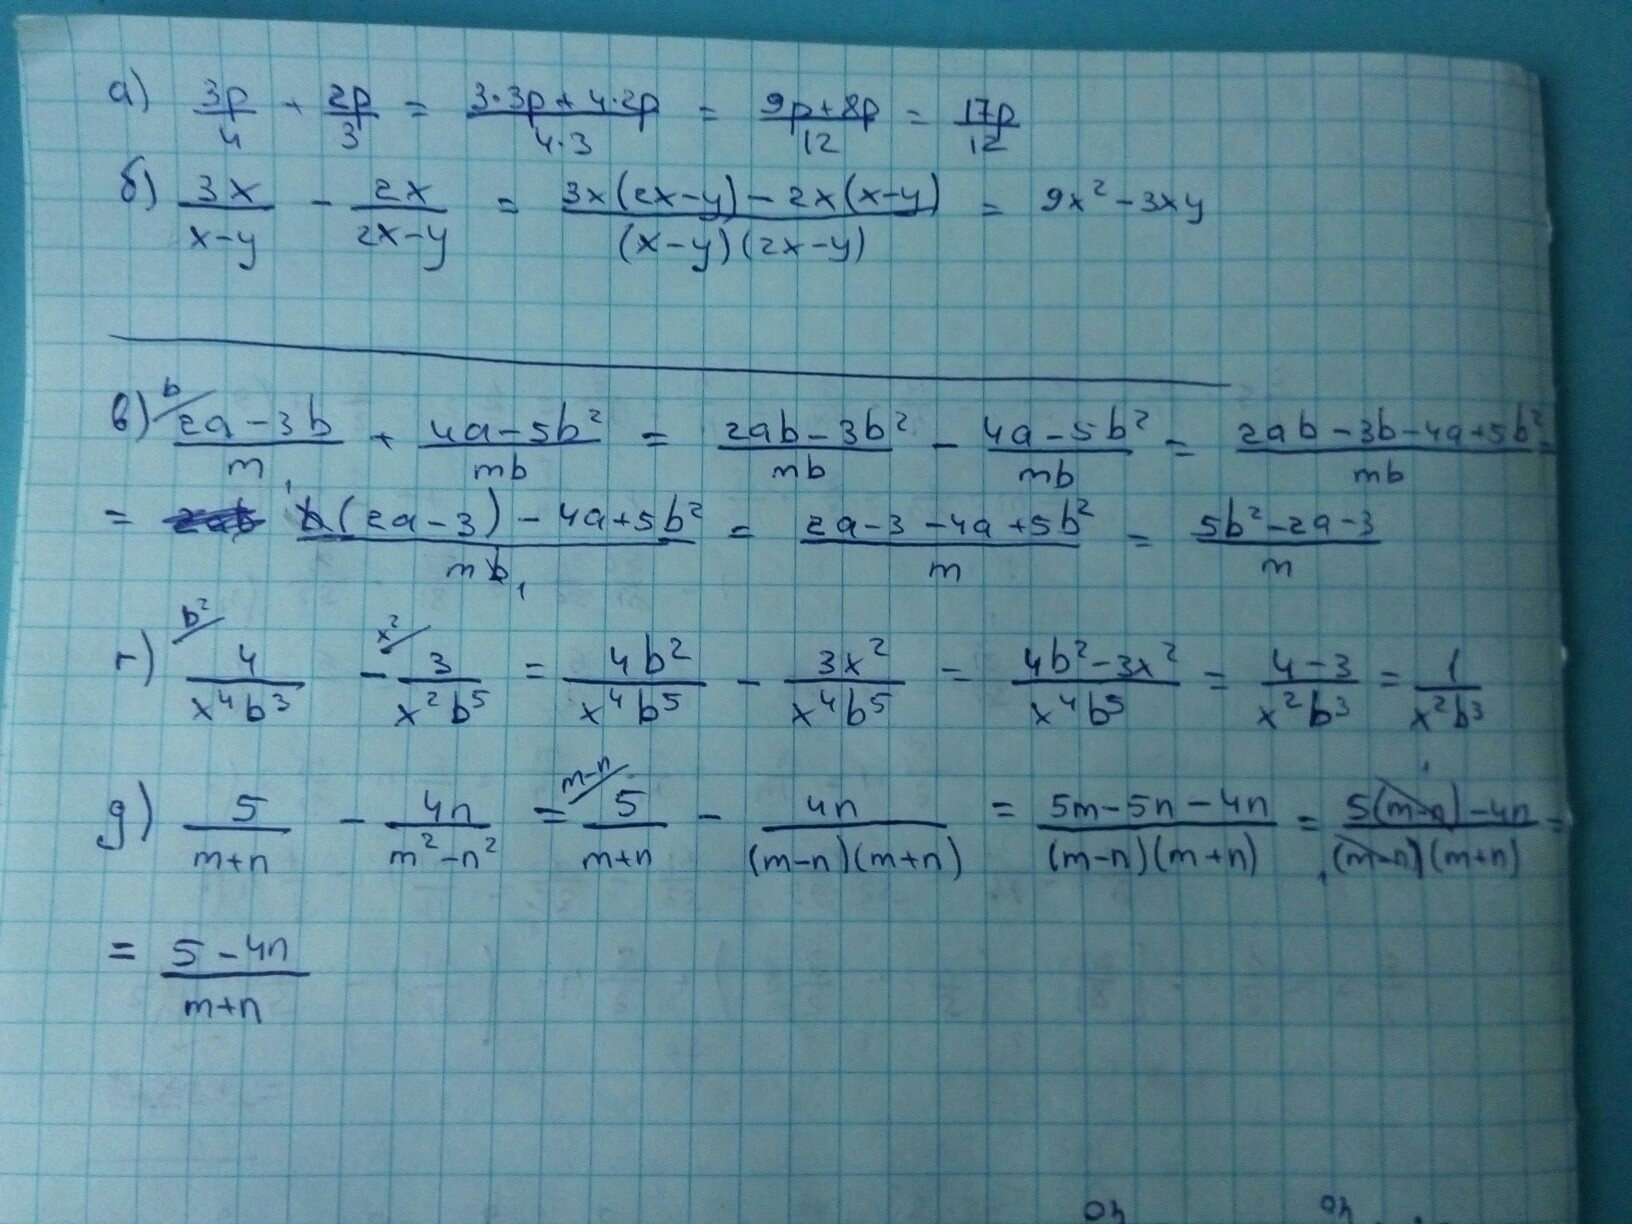 а) 3p/4 + 2p/3 = (3·3p+4·2p)/(4·3) = (9p+8p)/12 = 17p/12
б) 3x/(x-y) - 2x/(2x-y) = (3x(2x-y)-2x(x-y))/((x-y)(2x-y)) = 9x²-3xy
в) b/ (2a-3b)/m + (4a-5b²)/(mb) = (2ab-3b²)/(mb) - (4a-5b²)/(mb) = (2ab-3b-4a+5b²)/(mb) =
= (b(2a-3)-4a+5b²)/(mb) = (2a-3-4a+5b²)/m = (5b²-2a-3)/m
г) b²/ 4/(x⁴b³) - x²/ 3/(x²b⁵) = 4b²/(x⁴b⁵) - 3x²/(x⁴b⁵) = (4b²-3x²)/(x⁴b⁵) = (4-3)/(x²b³) = 1/(x²b³)
g) 5/(m+n) - 4n/(m²-n²) = m-n/ 5/(m+n) - 4n/((m-n)(m+n)) = (5m-5n-4n)/((m-n)(m+n)) = (5(m-n)-4n)/((m-n)(m+n)) =
= (5-4n)/(m+n)